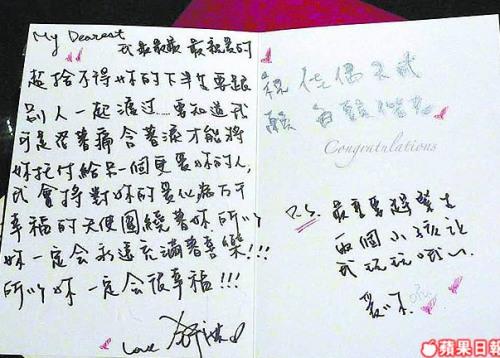 My Dearest
我最最最 最親愛的
超捨不得妳的下半生要跟
別人一起渡過.....要知道我
可是忍著痛含著淚才能將
妳托付給另一個更愛妳的人,
我會將對妳的愛化為万千
幸福的天使圍繞著妳 所以
妳一定会永遠充滿著喜樂!!!
所以妳一定会很幸福!!!
Love
祝 佳偶天成
願
Congratulations
P.S. 最重要趕緊生
兩個小孩讓
我玩玩哦~
蘋果日報